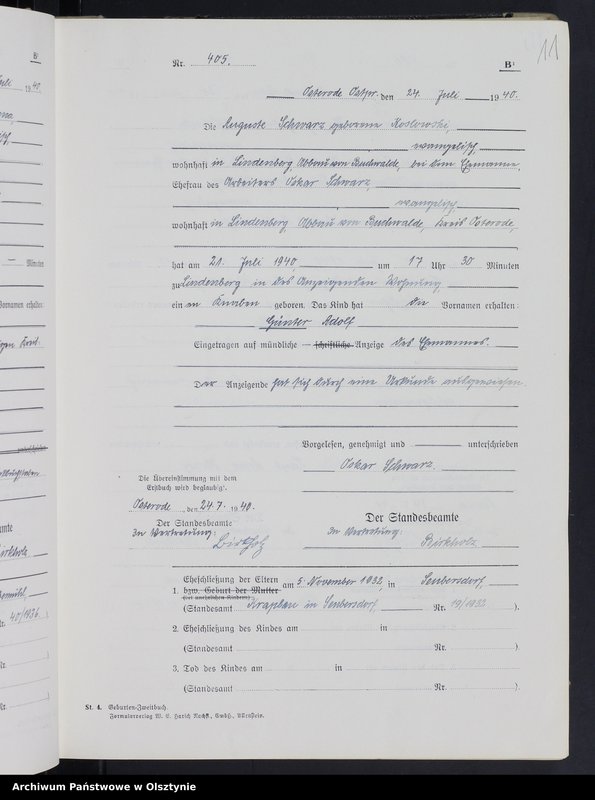 11
B¹
Nr. 405.
Osterode Ostpr. den 24. Juli 1940.
Die Auguste Schwarz geborene Koslowski,
evangelisch,
wohnhaft in Lindenberg, Abbau von Buchwalde, bei dem Ehemanne,
Ehefrau des Arbeiters Oskar Schwarz,
evangelisch,
wohnhaft in Lindenberg Abbau von Buchwalde, Kreis Osterode,
hat am 21. Juli 1940 um 17 Uhr 30 Minuten
zu Lindenberg in des Anzeigenden Wohnung
einen Knaben geboren. Das Kind hat die Vornamen erhalten:
Günter Adolf
Eingetragen auf mündliche – schriftliche – Anzeige des Ehemannes.
Der Anzeigende hat sich durch eine Urkunde ausgewiesen.
Vorgelesen, genehmigt und unterschrieben
Oskar Schwarz.
Die Übereinstimmung mit dem
Erstbuch wird beglaubigt.
Osterode, den 24. 7. 1940.
Der Standesbeamte
In Vertretung:
Birkholz
Der Standesbeamte
In Vertretung:
Birkholz
1. Eheschließung der Eltern am 5. November 1932, in Seubersdorf,
bzw. Geburt der Mutter
(bei unehelichen Kindern)
(Standesamt Kraplau in Seubersdorf Nr. 19/1932 ).
2. Eheschließung des Kindes am in
(Standesamt Nr. ).
3. Tod des Kindes am in
(Standesamt Nr. ).
St. 4. Geburten-Zweitbuch.
Formularverlag W. E. Harich Nachf., GmbH., Allenstein.
Archiwum Państwowe w Olsztynie